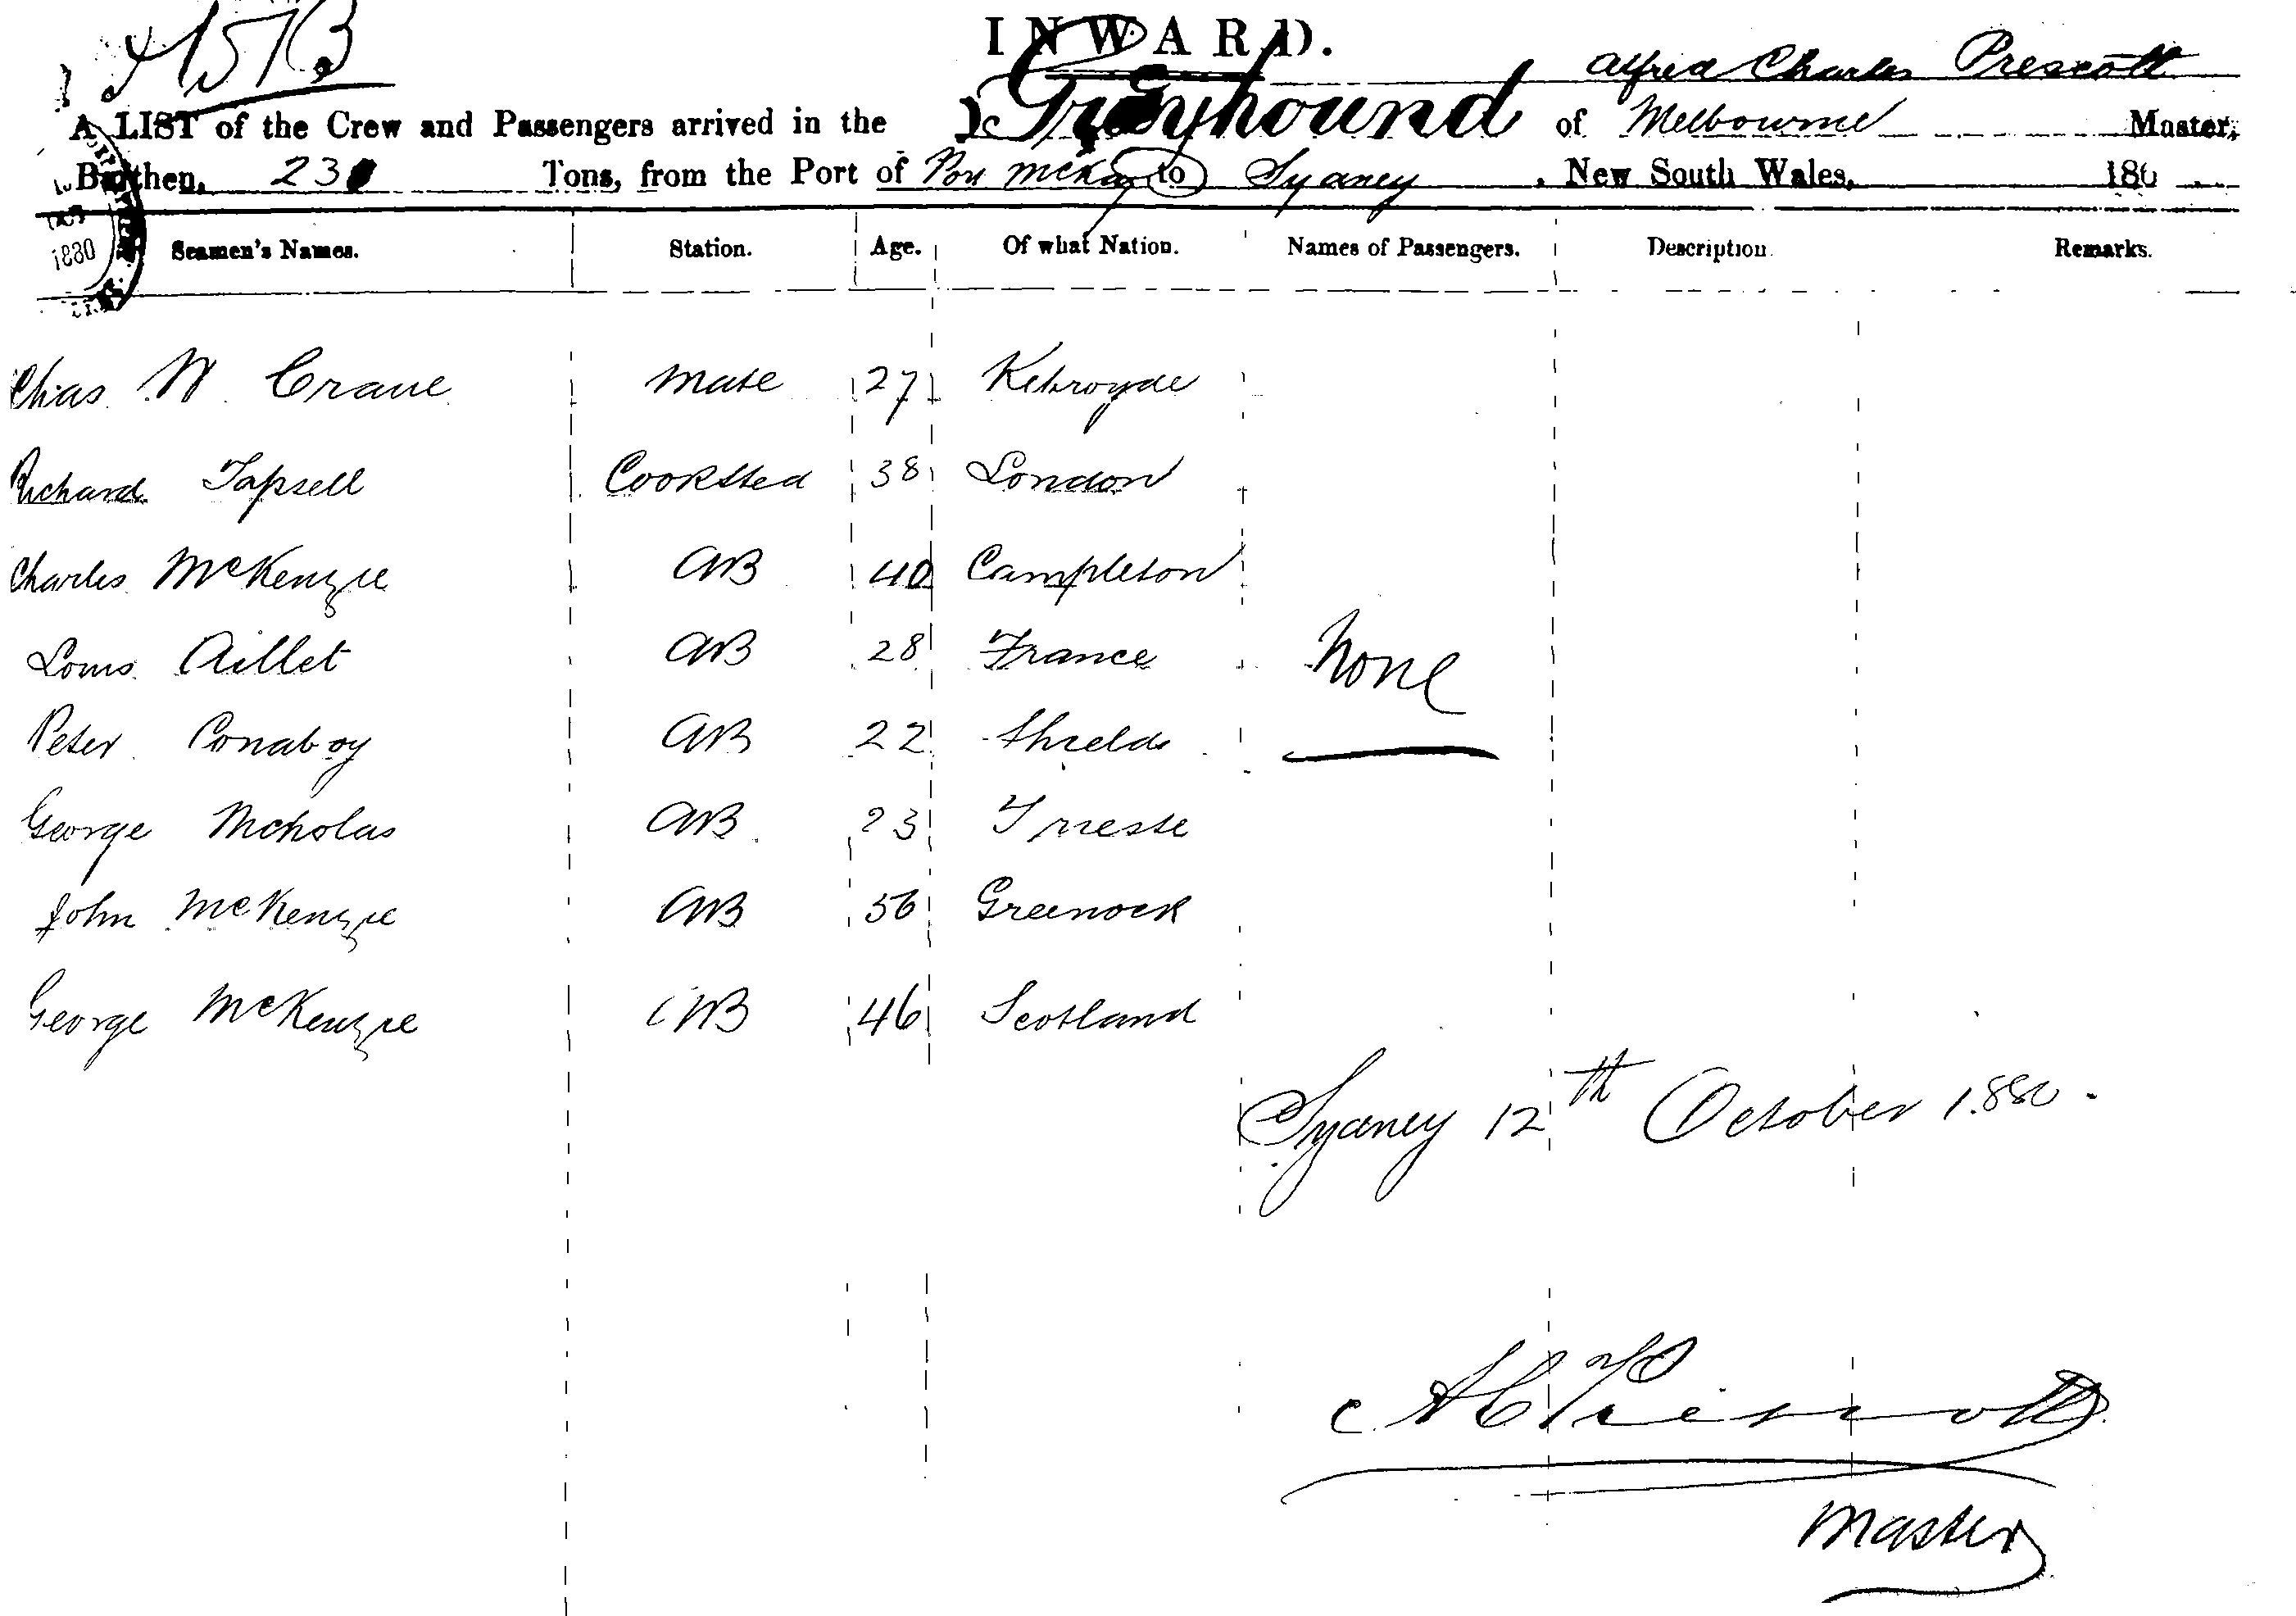 INWARD.
Alfred Charles Prescott
A LIST of the Crew and Passengers arrived in the Greyhound of Melbourne Master,
Burthen, 23 Tons, from the Port of Port McKay to Sydney, New South Wales, 18
1880
Seamen's Names. Station. Age. Of what Nation. Names of Passengers. Description. Remarks.
Chas W Crane Mate 27
Richard Tapsell Cook Sted 38 London
Charles McKenzie AB 40 Campleton
Louis Aillet AB 28 France None
Peter Conaboy AB 22 Shields
George Nicholas AB 23 Trieste
John McKenzie AB 56 Greenock
George McKenzie AB 46 Scotland
Sydney 12th October 1880.
A C Prescott
Master